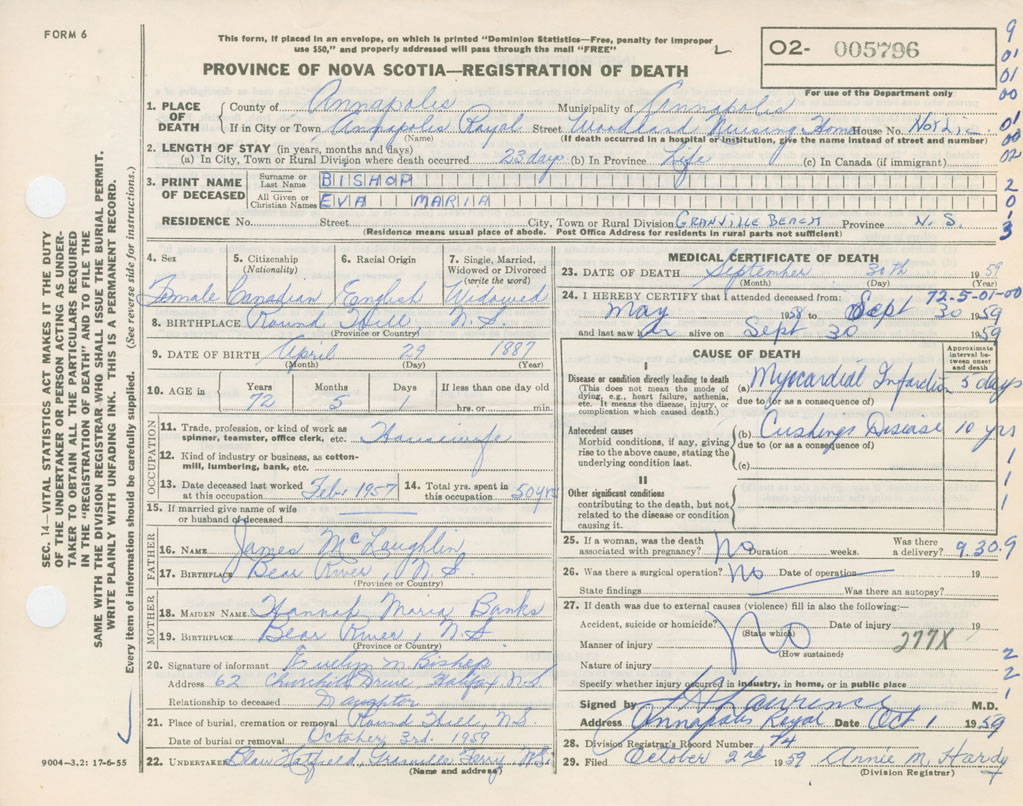 FORM 6
This form, if placed in an envelope, on which is printed "Dominion Statistics—Free, penalty for improper
use $50," and properly addressed will pass through the mail "FREE"
O2- 005796
For use of the Department only
PROVINCE OF NOVA SCOTIA—REGISTRATION OF DEATH
9
01
01
00
01
00
02
2
0
3
1. PLACE OF DEATH County of Annapolis Municipality of Annapolis
If in City or Town Annapolis Royal Street Woodland Nursing Home House No.
(Name) (If death occurred in a hospital or institution, give the name instead of street and number)
2. LENGTH OF STAY (in years, months and days)
(a) In City, Town or Rural Division where death occurred 23 days (b) In Province Life (c) In Canada (if immigrant)
3. PRINT NAME OF DECEASED Surname or Last Name BISHOP
All Given or Christian Names EVA MARIA
RESIDENCE No. Street City, Town or Rural Division GRANVILLE BEACH Province N.S.
(Residence means usual place of abode. Post Office Address for residents in rural parts not sufficient)
4. Sex 5. Citizenship (Nationality) 6. Racial Origin 7. Single, Married, Widowed or Divorced (write the word)
Female Canadian English Widowed
8. BIRTHPLACE Round Hill, N.S.
(Province or Country)
9. DATE OF BIRTH April 29 1887
(Month) (Day) (Year)
10. AGE in Years Months Days If less than one day old
72 5 1 hrs. or min.
OCCUPATION
11. Trade, profession, or kind of work as spinner, teamster, office clerk, etc. Housewife
12. Kind of industry or business, as cotton-mill, lumbering, bank, etc.
13. Date deceased last worked at this occupation Feb. 1957 14. Total yrs. spent in this occupation 50 yrs
15. If married give name of wife or husband of deceased
FATHER
16. NAME James McLaughlin
17. BIRTHPLACE Bear River, N.S.
(Province or Country)
MOTHER
18. MAIDEN NAME Hannah Maria Banks
19. BIRTHPLACE Bear River, N.S
(Province or Country)
20. Signature of informant Evelyn M. Bishop
Address 62 Churchill Drive Halifax N.S.
Relationship to deceased Daughter
21. Place of burial, cremation or removal Round Hill, N.S.
Date of burial or removal October 3rd. 1959
22. UNDERTAKER Blair Hatfield, Granville Ferry, N.S.
(Name and address)
MEDICAL CERTIFICATE OF DEATH
23. DATE OF DEATH September 30th 1959
(Month) (Day) (Year)
24. I HEREBY CERTIFY that I attended deceased from: 72-5-01-00
May 1958 to Sept 30 1959
and last saw her alive on Sept 30 1959
CAUSE OF DEATH
Approximate interval between onset and death
I
Disease or condition directly leading to death
(This does not mean the mode of dying, e.g., heart failure, asthenia, etc. It means the disease, injury, or complication which caused death.)
(a) Myocardial Infarction 5 days
due to (or as a consequence of)
Antecedent causes
Morbid conditions, if any, giving rise to the above cause, stating the underlying condition last.
(b) Cushings Disease 10 yrs
due to (or as a consequence of)
(c)
II
Other significant conditions
contributing to the death, but not related to the disease or condition causing it.
1
1
1
25. If a woman, was the death associated with pregnancy? No Duration weeks. Was there a delivery? 9.30.9
26. Was there a surgical operation? No Date of operation 19
State findings Was there an autopsy?
27. If death was due to external causes (violence) fill in also the following:—
Accident, suicide or homicide? No Date of injury 19
(State which)
Manner of injury 277X
(How sustained)
Nature of injury
2
2
1
Specify whether injury occurred in industry, in home, or in public place
Signed by Lawrence M.D.
Address Annapolis Royal Date Oct 1 1959
28. Division Registrar's Record Number 74
29. Filed October 2nd 1959 Annie M. Hardy
(Division Registrar)
SEC. 14—VITAL STATISTICS ACT MAKES IT THE DUTY
OF THE UNDERTAKER OR PERSON ACTING AS UNDER-
TAKER TO OBTAIN ALL THE PARTICULARS REQUIRED
IN THE "REGISTRATION OF DEATH" AND TO FILE THE
SAME WITH THE DIVISION REGISTRAR WHO SHALL ISSUE THE BURIAL PERMIT.
WRITE PLAINLY WITH UNFADING INK. THIS IS A PERMANENT RECORD.
Every item of information should be carefully supplied. (See reverse side for instructions.)
9004-3.2: 17-6-55